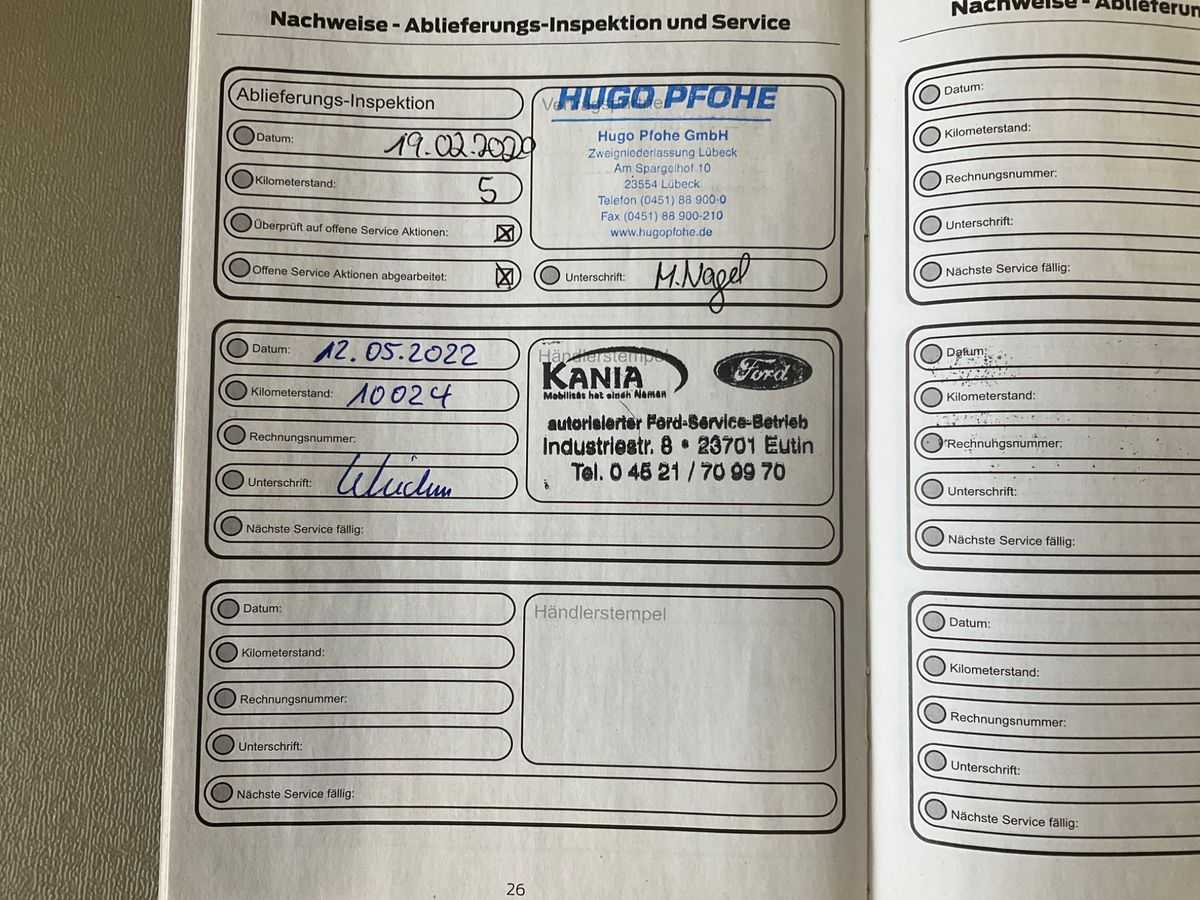 Nachweise - Ablieferungs-Inspektion und Service
Ablieferungs-Inspektion
Datum: 19.02.2020
Kilometerstand: 5
Überprüft auf offene Service Aktionen: ☒
Offene Service Aktionen abgearbeitet: ☒
HUGO PFOHE
Hugo Pfohe GmbH
Zweigniederlassung Lübeck
Am Spargelhof 10
23554 Lübeck
Telefon (0451) 88 900-0
Fax (0451) 88 900-210
www.hugopfohe.de
Unterschrift: M. Nagel
Datum: 12.05.2022
Kilometerstand: 10024
Rechnungsnummer:
Unterschrift:
Nächste Service fällig:
Händlerstempel
KANIA
Mobilität hat einen Namen
Ford
autorisierter Ford-Service-Betrieb
Industriestr. 8 • 23701 Eutin
Tel. 0 45 21 / 70 99 70
Datum:
Kilometerstand:
Rechnungsnummer:
Unterschrift:
Nächste Service fällig:
Händlerstempel
26
Nachweise - Ablieferun
Datum:
Kilometerstand:
Rechnungsnummer:
Unterschrift:
Nächste Service fällig:
Datum:
Kilometerstand:
Rechnungsnummer:
Unterschrift:
Nächste Service fällig:
Datum:
Kilometerstand:
Rechnungsnummer:
Unterschrift:
Nächste Service fällig: